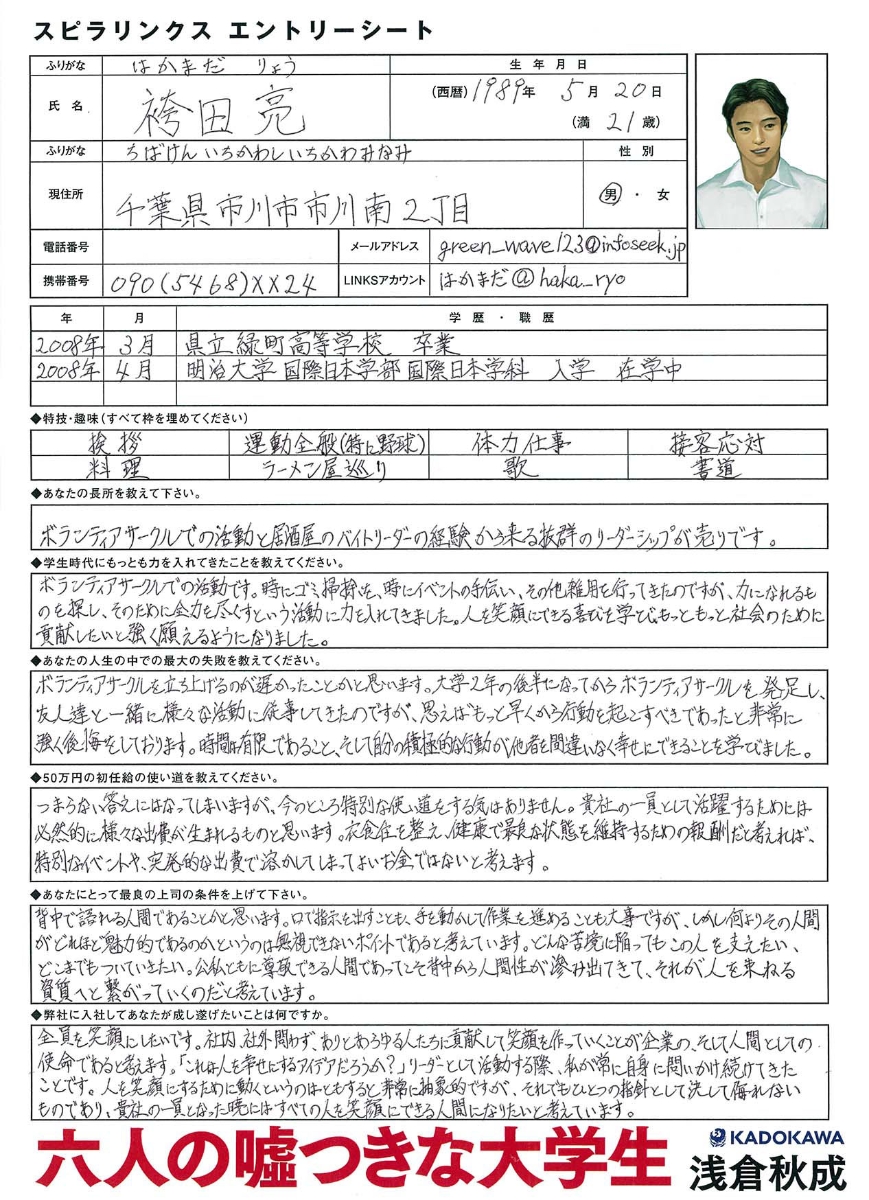 スピラリンクス エントリーシート
ふりがな はかまだ りょう 生年月日
氏名 袴田亮 (西暦)1989年 5月 20日
(満 21歳)
ふりがな ちばけん いちかわし いちかわみなみ 性別
現住所 千葉県市川市市川南2丁目 男・女
電話番号 メールアドレス green_wave123@infoseek.jp
携帯番号 090(5468)XX24 LINKSアカウント はかまだ@haka_ryo
年 月 学歴・職歴
2008年 3月 県立緑町高等学校 卒業
2008年 4月 明治大学 国際日本学部 国際日本学科 入学 在学中
◆特技・趣味(すべて枠を埋めてください)
挨拶 運動全般(特に野球) 体力仕事 接客応対
料理 ラーメン屋巡り 歌 書道
◆あなたの長所を教えて下さい。
ボランティアサークルでの活動と居酒屋のバイトリーダーの経験から来る抜群のリーダーシップが売りです。
◆学生時代にもっとも力を入れてきたことを教えてください。
ボランティアサークルでの活動です。時にゴミ掃除を、時にイベントの手伝い、その他雑用を行ってきたのですが、力になれるも
のを探し、そのために全力を尽くすという活動に力を入れてきました。人を笑顔にできる喜びを学び、もっともっと社会のために
貢献したいと強く願えるようになりました。
◆あなたの人生の中での最大の失敗を教えてください。
ボランティアサークルを立ち上げるのが遅かったことかと思います。大学2年の後半になってからボランティアサークルを発足し、
友人達と一緒に様々な活動に従事してきたのですが、思えばもっと早くから行動を起こすべきであったと非常に
強く後悔をしております。時間は有限であること、そして自分の積極的な行動が他者を間違いなく幸せにできることを学びました。
◆50万円の初任給の使い道を教えてください。
つまらない答えにはなってしまいますが、今のところ特別な使い道をする気はありません。貴社の一員として活躍するためには
必然的に様々な出費が生まれるものと思います。衣食住を整え、健康で最良な状態を維持するための報酬だと考えれば、
特別なイベントや、突発的な出費で溶かしてしまってよいお金ではないと考えます。
◆あなたにとって最良の上司の条件を上げて下さい。
背中で語れる人間であることかと思います。口で指示を出すことも、手を動かして作業を進めることも大事ですが、しかし何よりその人間
がどれほど魅力的であるのか、というのは無視できないポイントであると考えています。どんな苦境に陥ってもこの人を支えたい、
どこまでもついていきたい。公私ともに尊敬できる人間であってこそ背中から人間性が滲み出てきて、それが人を束ねる
資質へと繋がっていくのだと考えています。
◆弊社に入社してあなたが成し遂げたいことは何ですか。
全員を笑顔にしたいです。社内、社外問わず、ありとあらゆる人たちに貢献して笑顔を作っていくことが企業の、そして人間としての
使命であると考えます。「これは人を幸せにするアイデアだろうか?」リーダーとして活動する際、私が常に自身に問いかけ続けてきた
ことです。人を笑顔にするために動くというのはともすると非常に抽象的ですが、それでもひとつの指針として決して侮れない
ものであり、貴社の一員となった暁にはすべての人を笑顔にできる人間になりたいと考えています。
六人の嘘つきな大学生
KADOKAWA
浅倉秋成